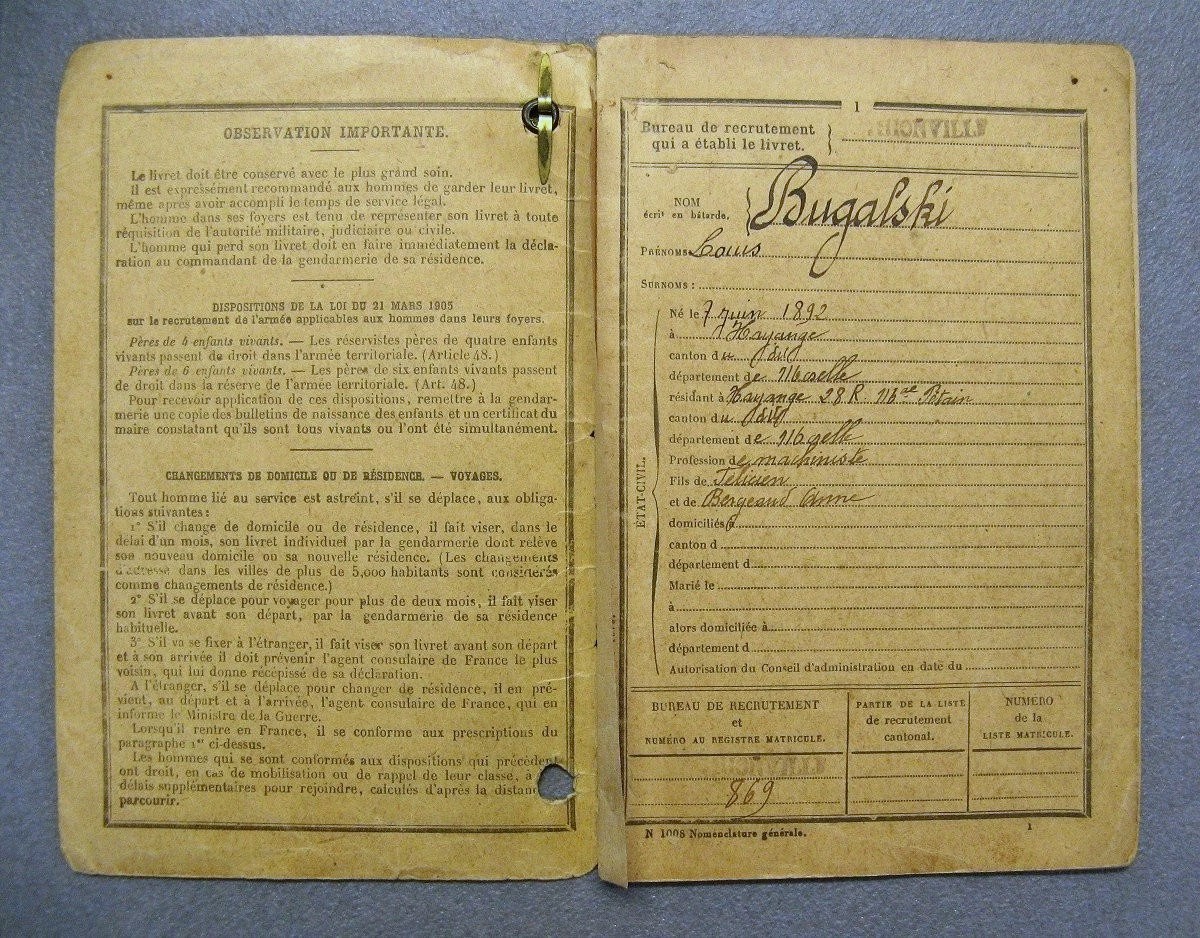 OBSERVATION IMPORTANTE.
Le livret doit être conservé avec le plus grand soin.
Il est expressément recommandé aux hommes de garder leur livret,
même après avoir accompli le temps de service légal.
L'homme dans ses foyers est tenu de représenter son livret à toute
réquisition de l'autorité militaire, judiciaire ou civile.
L'homme qui perd son livret doit en faire immédiatement la décla-
ration au commandant de la gendarmerie de sa résidence.
DISPOSITIONS DE LA LOI DU 21 MARS 1905
sur le recrutement de l'armée applicables aux hommes dans leurs foyers.
Pères de 4 enfants vivants. — Les réservistes pères de quatre enfants
vivants passent de droit dans l'armée territoriale. (Article 48.)
Pères de 6 enfants vivants. — Les pères de six enfants vivants passent
de droit dans la réserve de l'armée territoriale. (Art. 48.)
Pour recevoir application de ces dispositions, remettre à la gendar-
merie une copie des bulletins de naissance des enfants et un certificat du
maire constatant qu'ils sont tous vivants ou l'ont été simultanément.
CHANGEMENTS DE DOMICILE OU DE RÉSIDENCE. — VOYAGES.
Tout homme lié au service est astreint, s'il se déplace, aux obliga-
tions suivantes :
1° S'il change de domicile ou de résidence, il fait viser, dans le
délai d'un mois, son livret individuel par la gendarmerie dont relève
son nouveau domicile ou sa nouvelle résidence. (Les changements
d'adresse dans les villes de plus de 5,000 habitants sont considérés
comme changements de résidence.)
2° S'il se déplace pour voyager pour plus de deux mois, il fait viser
son livret avant son départ, par la gendarmerie de sa résidence
habituelle.
3° S'il va se fixer à l'étranger, il fait viser son livret avant son départ
et à son arrivée il doit prévenir l'agent consulaire de France le plus
voisin, qui lui donne récépissé de sa déclaration.
A l'étranger, s'il se déplace pour changer de résidence, il en pré-
vient, au départ et à l'arrivée, l'agent consulaire de France, qui en
informe le Ministre de la Guerre.
Lorsqu'il rentre en France, il se conforme aux prescriptions du
paragraphe 1er ci-dessus.
Les hommes qui se sont conformés aux dispositions qui précèdent
ont droit, en cas de mobilisation ou de rappel de leur classe, à
délais supplémentaires pour rejoindre, calculés d'après la distan
parcourir.
1
Bureau de recrutement
qui a établi le livret.
THIONVILLE
NOM
écrit en bâtarde.
Bugalski
PRÉNOMS Louis
SURNOMS :
ÉTAT-CIVIL.
Né le 7 juin 1892
à Hayange
canton du dit
département de Moselle
résidant à Hayange 28 R. Mal Pétain
canton du dit
département de Moselle
Profession de machiniste
Fils de Félicien
et de Bergeaud Anne
domiciliés à
canton d
département d
Marié le
à
alors domiciliée à
département d
Autorisation du Conseil d'administration en date du
BUREAU DE RECRUTEMENT
et
NUMÉRO AU REGISTRE MATRICULE.
THIONVILLE
869
PARTIE DE LA LISTE
de recrutement
cantonal.
NUMÉRO
de la
LISTE MATRICULE.
N 1008 Nomenclature générale.
1